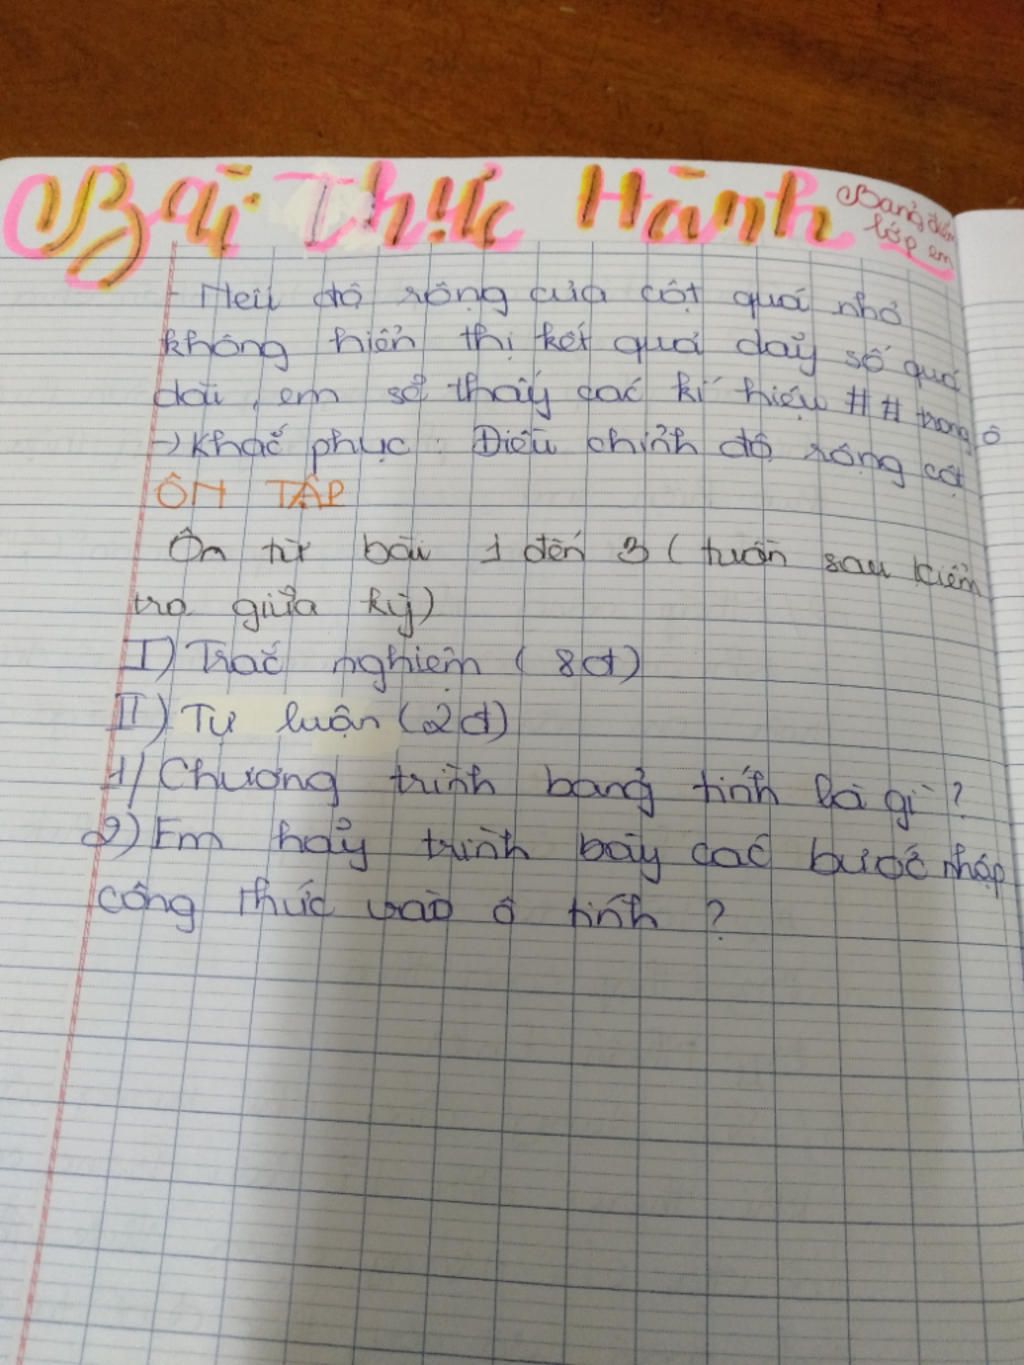 Bài Thực Hành Bảng điểm
lớp em
- Nếu độ rộng của cột quá nhỏ
không hiển thị kết quả dãy số quá
dài, em sẽ thấy các kí hiệu ## trong ô
→ Khắc phục: Điều chỉnh độ rộng cột
ÔN TẬP
Ôn từ bài 1 đến 3 (tuần sau kiểm
tra giữa kỳ)
I) Trắc nghiệm (8đ)
II) Tự luận (2đ)
1/ Chương trình bảng tính là gì?
2) Em hãy trình bày các bước nhập
công thức vào ô tính?